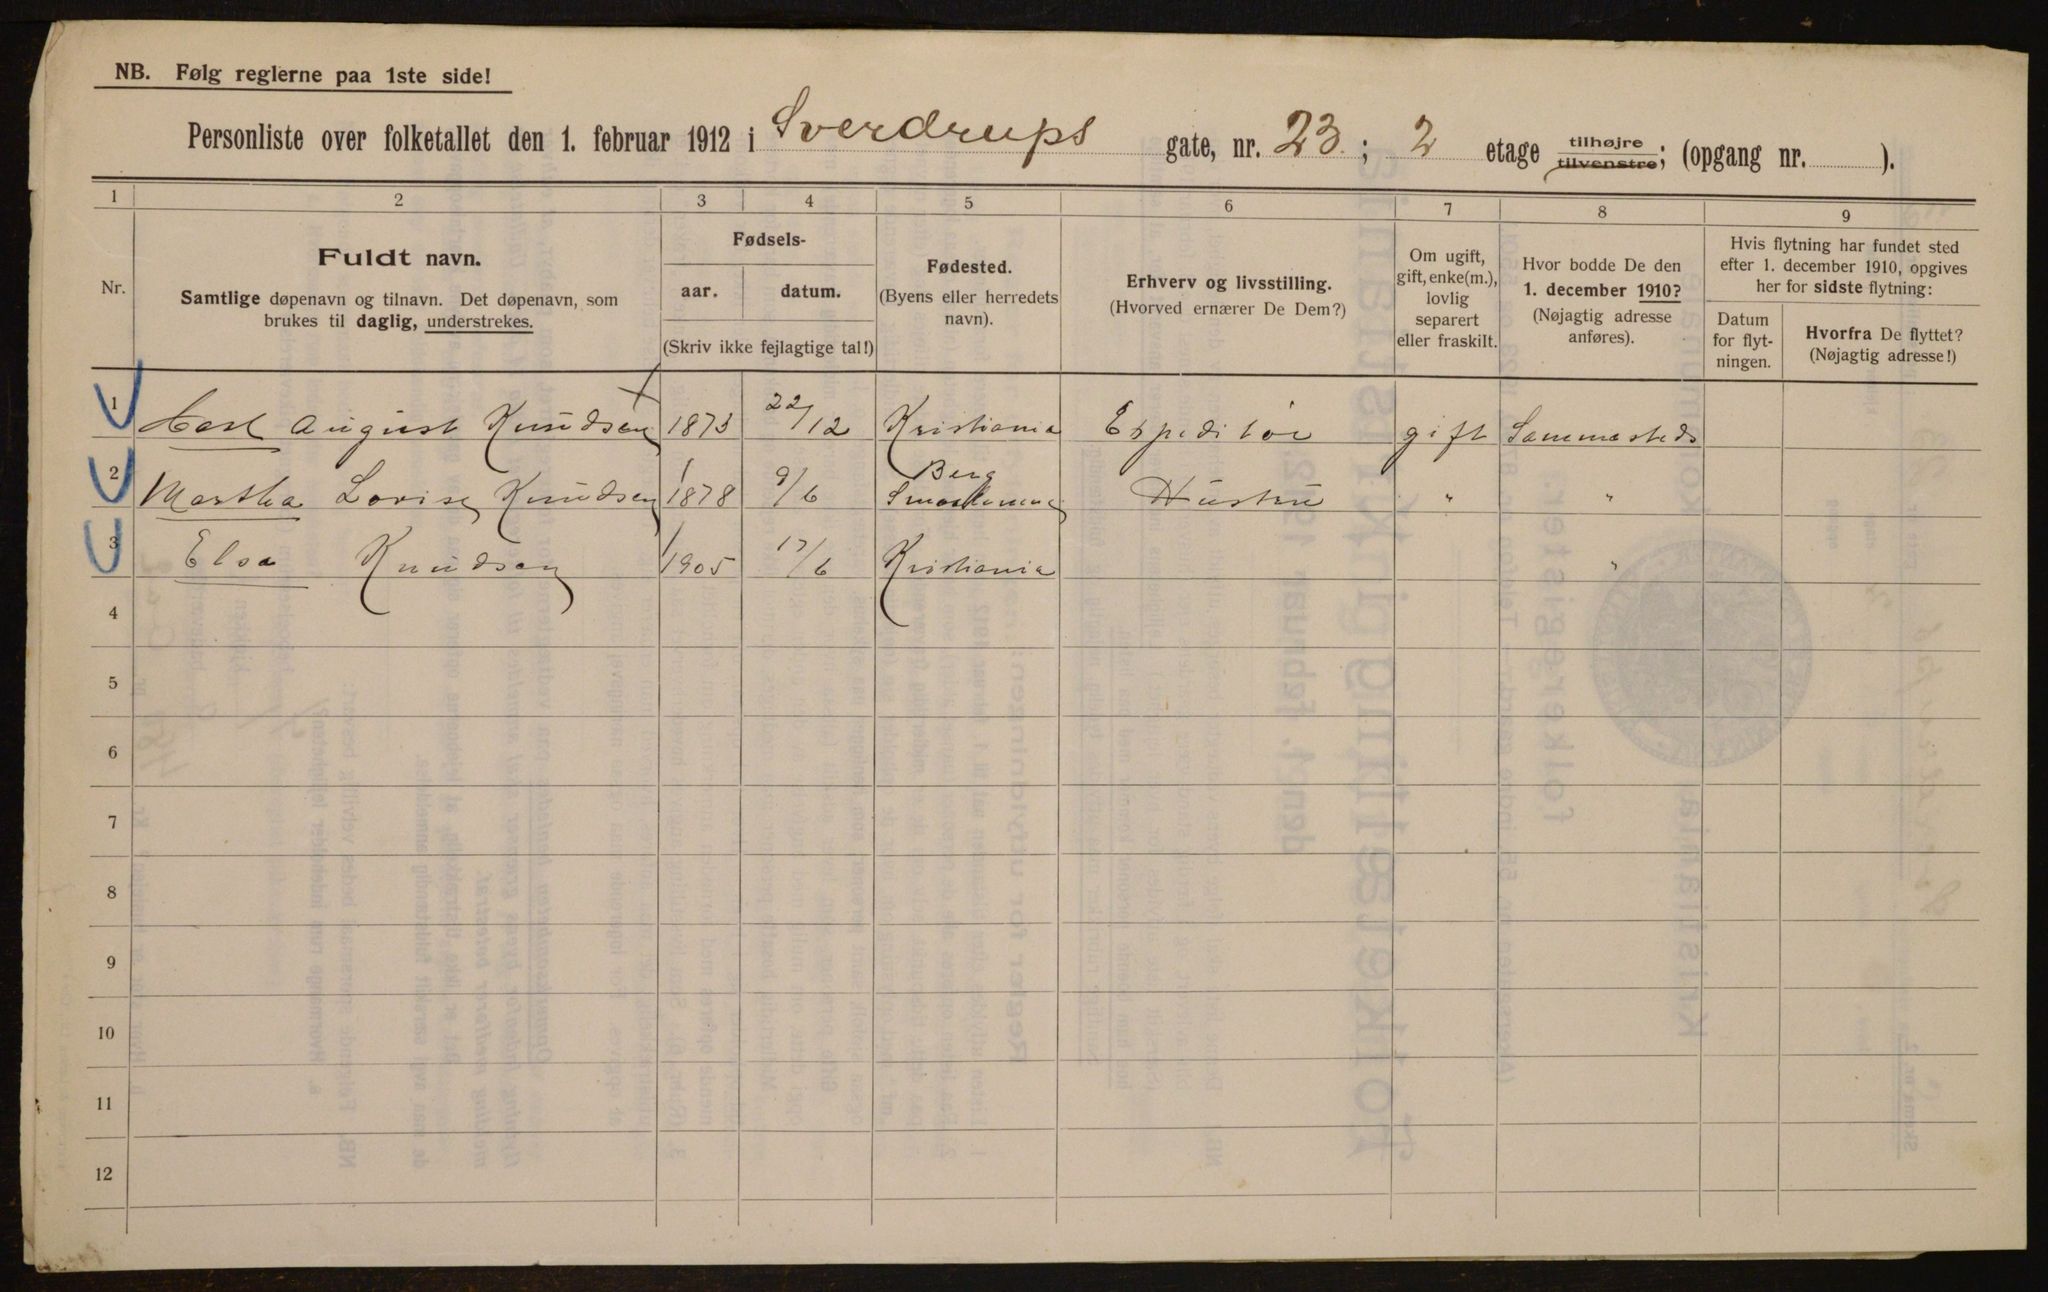 NB. Følg reglerne paa 1ste side!
Personliste over folketallet den 1. februar 1912 i Sverdrups gate, nr. 23 ; 2 etage tilhøjre tilvenstre; (opgang nr. ).
1 2 3 4 5 6 7 8 9
Nr.
Fuldt navn.
Samtlige døpenavn og tilnavn. Det døpenavn, som
brukes til daglig, understrekes.
Fødsels-
aar. datum.
(Skriv ikke fejlagtige tal!)
Fødested.
(Byens eller herredets
navn).
Erhverv og livsstilling.
(Hvorved ernærer De Dem?)
Om ugift,
gift, enke(m.),
lovlig
separert
eller fraskilt.
Hvor bodde De den
1. december 1910?
(Nøjagtig adresse
anføres).
Hvis flytning har fundet sted
efter 1. december 1910, opgives
her for sidste flytning:
Datum
for flyt-
ningen.
Hvorfra De flyttet?
(Nøjagtig adresse!)
1 Carl August Knudsen 1873 22/12 Kristiania Expeditør gift Sammesteds
2 Martha Lovise Knudsen 1878 9/6 Berg Smaalenene Hustru " "
3 Elsa Knudsen 1905 17/6 Kristiania "
4
5
6
7
8
9
10
11
12